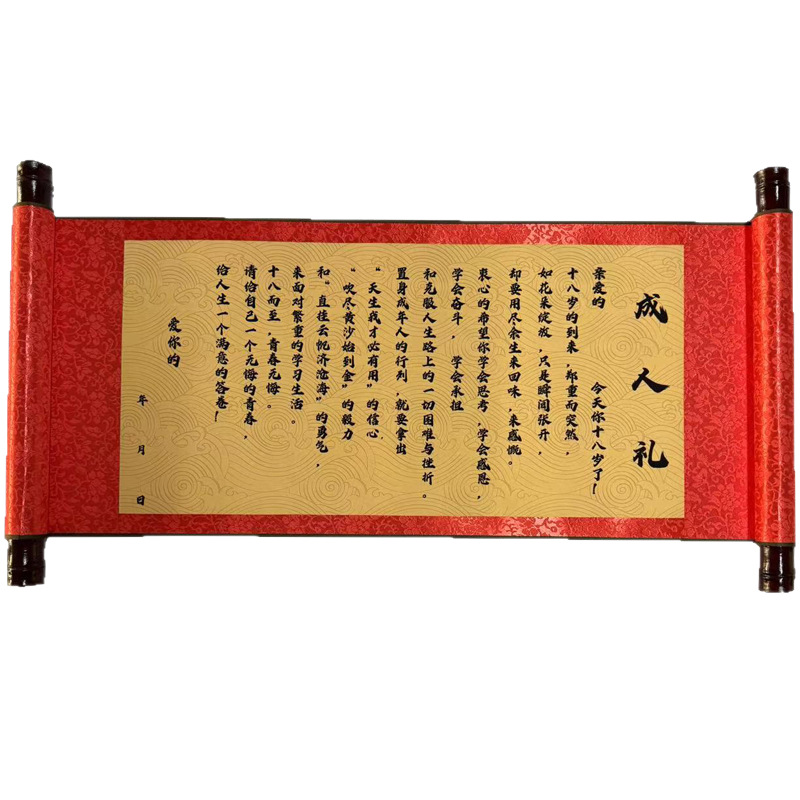 成人礼
亲爱的 今天你十八岁了！
十八岁的到来，郑重而突然，
如花朵绽放，只是瞬间张开，
却要用尽余生来回味，来感慨。
衷心的希望你学会思考，学会感恩，
学会奋斗，学会承担
和克服人生路上的一切困难与挫折。
置身成年人的行列，就要拿出
“天生我才必有用”的信心，
“吹尽黄沙始到金”的毅力
和“直挂云帆济沧海”的勇气，
来面对繁重的学习生活。
十八而至，青春无悔。
请给自己一个无悔的青春，
给人生一个满意的答卷！
爱你的
年 月 日